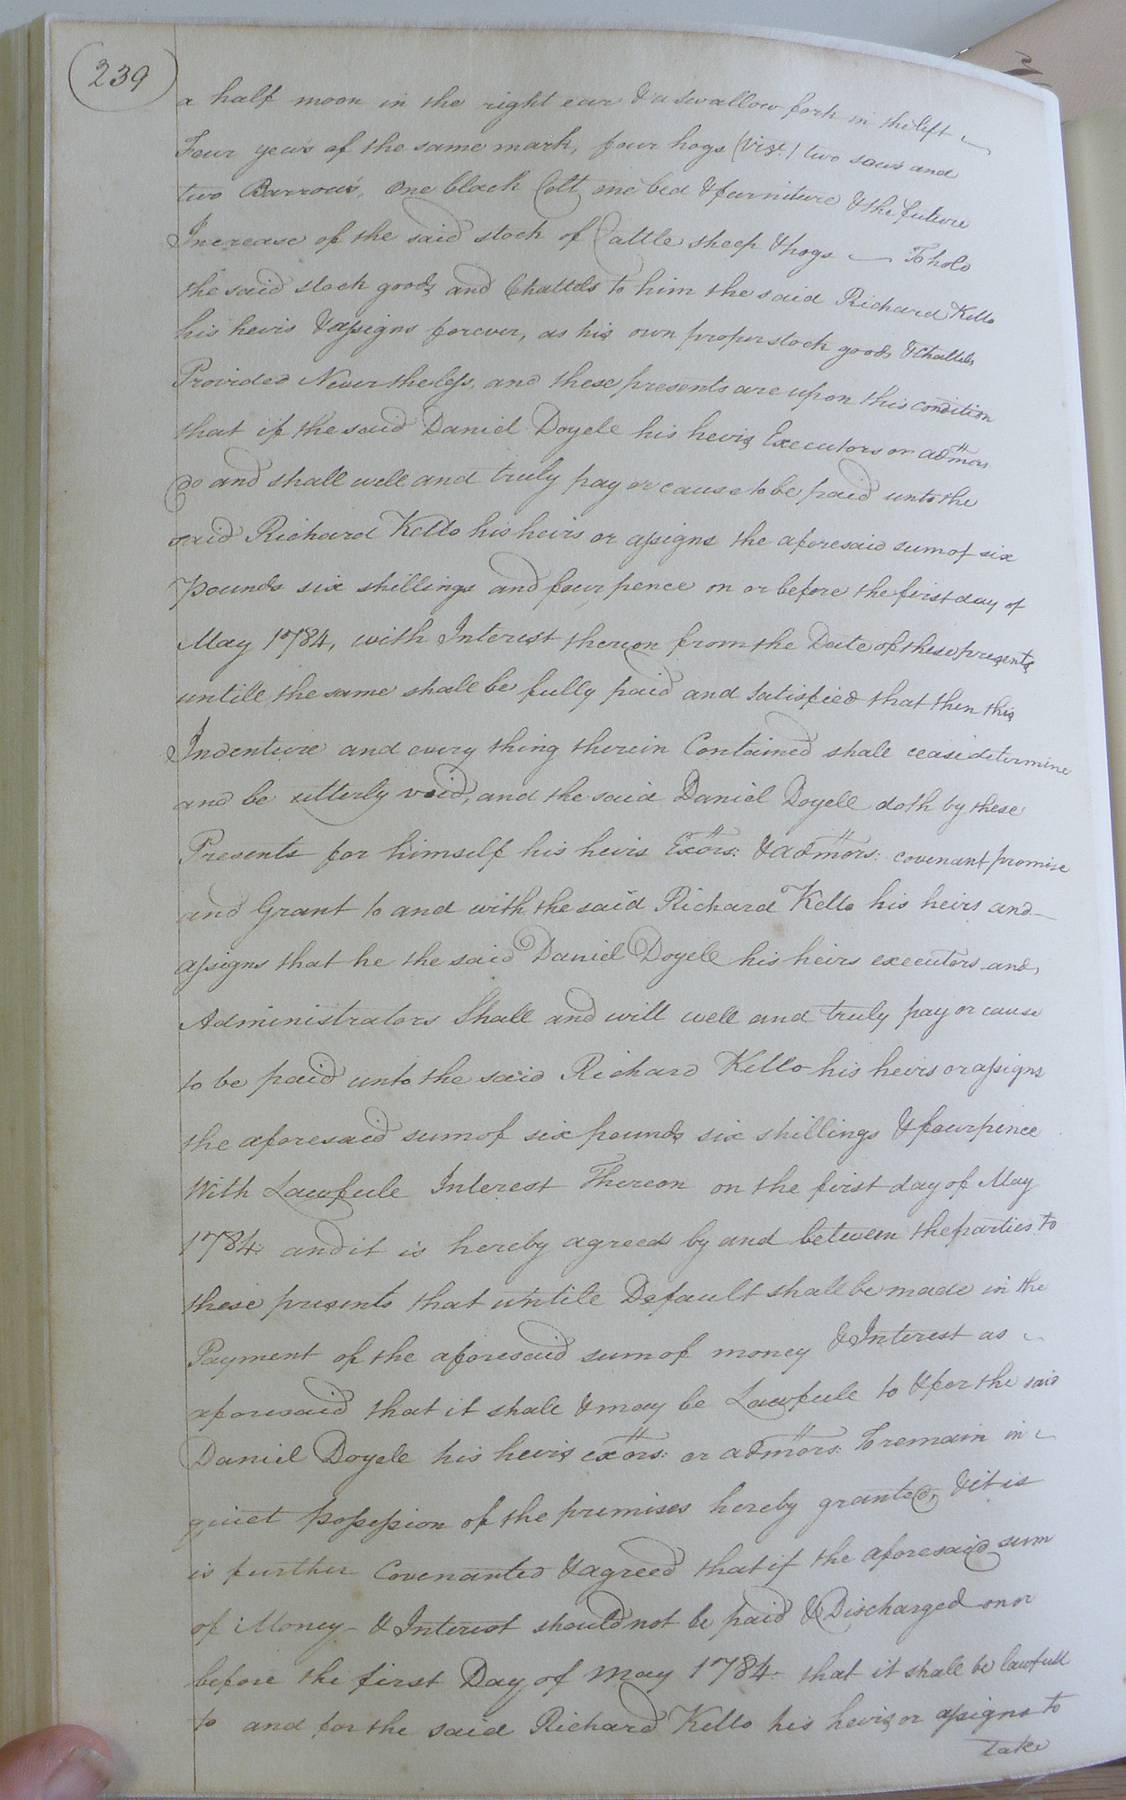 239
a half moon in the right ear & a swallow fork in the left
Four yews of the same mark, four hogs (Vizt.) two sows and
two Barrows, One black Colt one bed & furniture & the future
Increase of the said stock of Cattle sheep & hogs To hold
the said stock goods and Chattels to him the said Richard Kello
his heirs & assigns forever, as his own proper stock goods & Chattels
Provided Nevertheless, and these presents are upon this condition
that if the said Daniel Doyele his heirs Executors or admors
do and shall well and truly pay or cause to be paid unto the
said Richard Kello his heirs or assigns the aforesaid sum of six
Pounds six shillings and four pence on or before the first day of
May 1784, with Interest thereon from the Date of these presents
untill the same shall be fully paid and Satisfied that then this
Indenture and every thing therein Contained shall cease determine
and be utterly void, and the said Daniel Doyell doth by these
Presents for himself his heirs Exors: & admors: covenant promise
and Grant to and with the said Richard Kello his heirs and
assigns that he the said Daniel Doyele his heirs executors and
Administrators Shall and will well and truly pay or cause
to be paid unto the said Richard Kello his heirs or assigns
the aforesaid sum of six pounds six shillings & four pence
With Lawfule Interest Thereon on the first day of May
1784 and it is hereby agreed by and between the parties to
these presents that untile Default shall be made in the
Payment of the aforesaid sum of money & Interest as
aforesaid that it shall & may be Lawfule to & for the said
Daniel Doyele his heirs exors: or admors: To remain in
quiet possession of the premises hereby granted, & it is
is further Covenanted & agreed that if the aforesaid sum
of Money & Interest should not be paid & Discharged on or
before the first Day of May 1784 that it shall be lawfull
to and for the said Richard Kello his heirs or assigns to
take